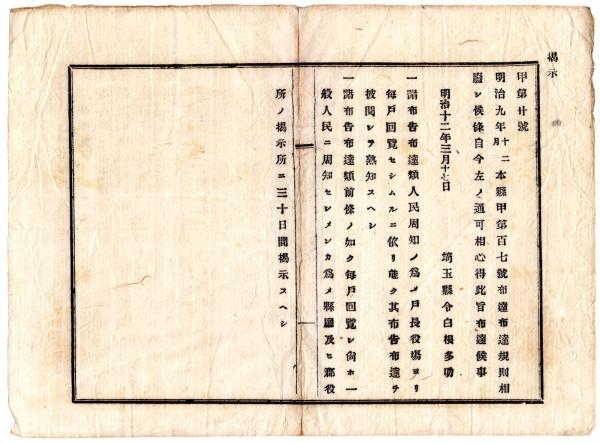 揭示
甲第廿號
明治九年十二月本縣甲第百七號布達布達規則相
廢シ候條自今左ノ通可相心得此旨布達候事
明治十二年三月十七日
埼玉縣令白根多助
一諸布告布達類人民周知ノ爲メ戶長役場ヨリ
每戶回覽セシムルニ依リ能ク其布告布達ヲ
披閱シテ熟知スヘシ
一諸布告布達類前條ノ如ク每戶回覽シ尙ホ一
般人民ニ周知セシメンカ爲メ縣廳及ヒ郡役
所ノ揭示所ニ三十日間揭示スヘシ